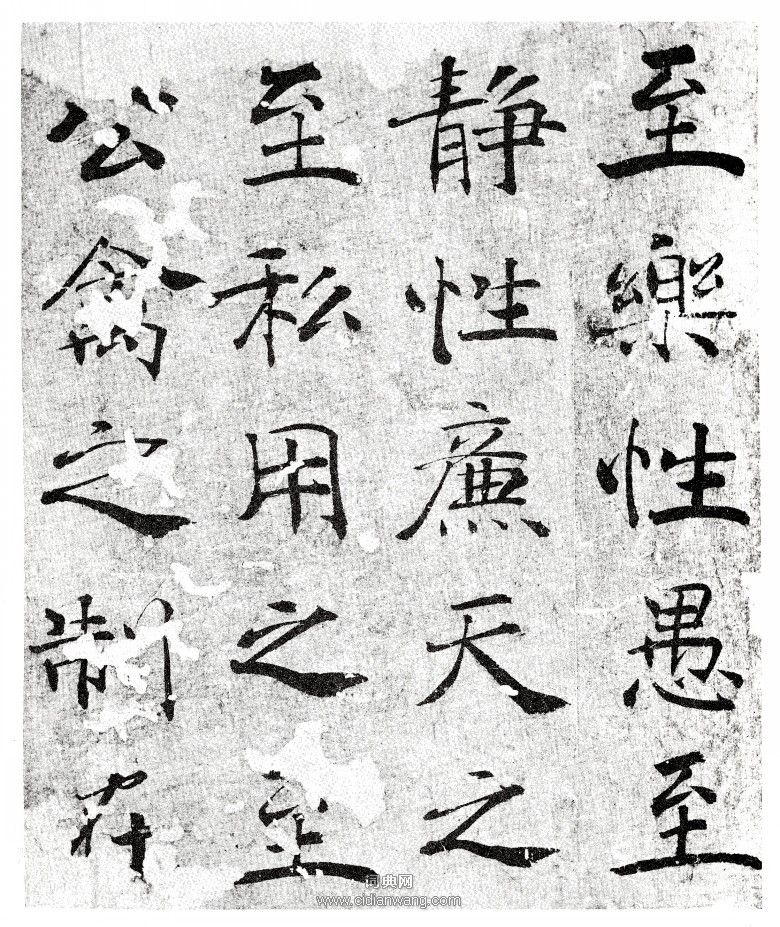 至樂性愚至
静性廉天之
至私用之至
公禽之制在
词典网
www.cidianwang.com